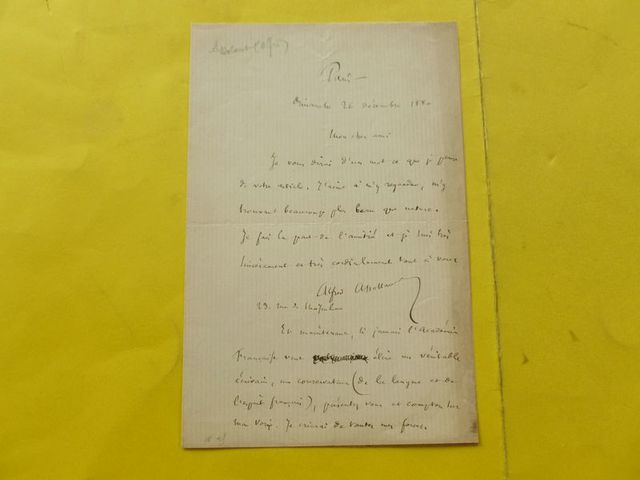 Paris
Dimanche 26 décembre 1880
Mon cher ami
Je vous dirai d'un mot ce que je pense
de votre article. J'aime à m'y regarder, m'y
trouvant beaucoup plus beau que nature.
Je fais la part de l'amitié et je suis très
sincèrement et très cordialement tout à vous
Alfred Assollant
23. rue de
Et maintenant, si jamais l'Académie
Française veut élire un véritable
écrivain, un conservateur (de la langue et de
l'esprit français), présentez vous et comptez sur
ma voix. Je crierai de toutes mes forces